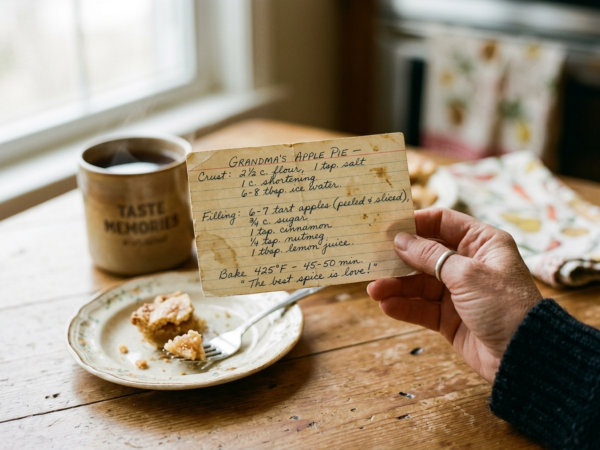 GRANDMA'S APPLE PIE —
Crust: 2½ c. flour, 1 tsp. salt
1 c. shortening
6-8 tbsp. ice water
Filling: 6-7 tart apples (peeled & sliced),
¾ c. sugar
1 tsp. cinnamon
¼ tsp. nutmeg
1 tbsp. lemon juice.
Bake 425°F - 45-50 min.
"The best spice is love!"
TASTE
MEMORIES